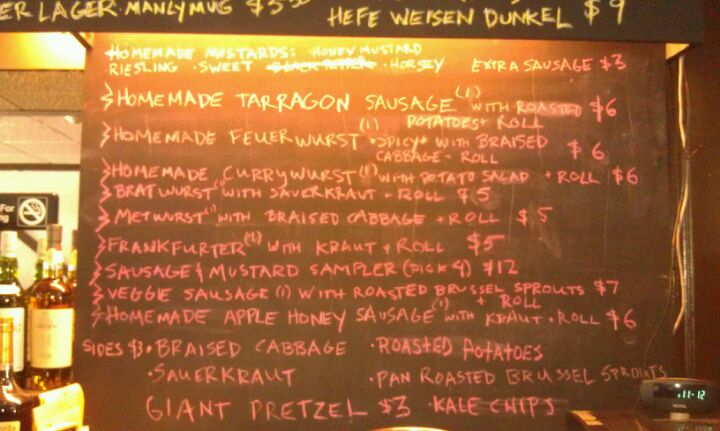 ER LAGER. MANLY MUG $5
HEFE WEISEN DUNKEL $9
HOMEMADE MUSTARDS: HONEY MUSTARD
RIESLING · SWEET · BLACK PEPPER · HORSEY EXTRA SAUSAGE $3
HOMEMADE TARRAGON SAUSAGE (1) WITH ROASTED $6
POTATOES + ROLL
HOMEMADE FEUERWURST (1) *SPICY* WITH BRAISED
CABBAGE + ROLL $6
HOMEMADE CURRYWURST (1) WITH POTATO SALAD + ROLL $6
BRATWURST (1) WITH SAUERKRAUT + ROLL $5
METWURST (1) WITH BRAISED CABBAGE + ROLL $5
FRANKFURTER (2) WITH KRAUT + ROLL $5
SAUSAGE & MUSTARD SAMPLER (PICK 4) $12
VEGGIE SAUSAGE (1) WITH ROASTED BRUSSEL SPROUTS $7
+ ROLL
HOMEMADE APPLE HONEY SAUSAGE (1) WITH KRAUT + ROLL $6
SIDES $3 · BRAISED CABBAGE · ROASTED POTATOES
· SAUERKRAUT · PAN ROASTED BRUSSEL SPROUTS
GIANT PRETZEL $3 · KALE CHIPS
For